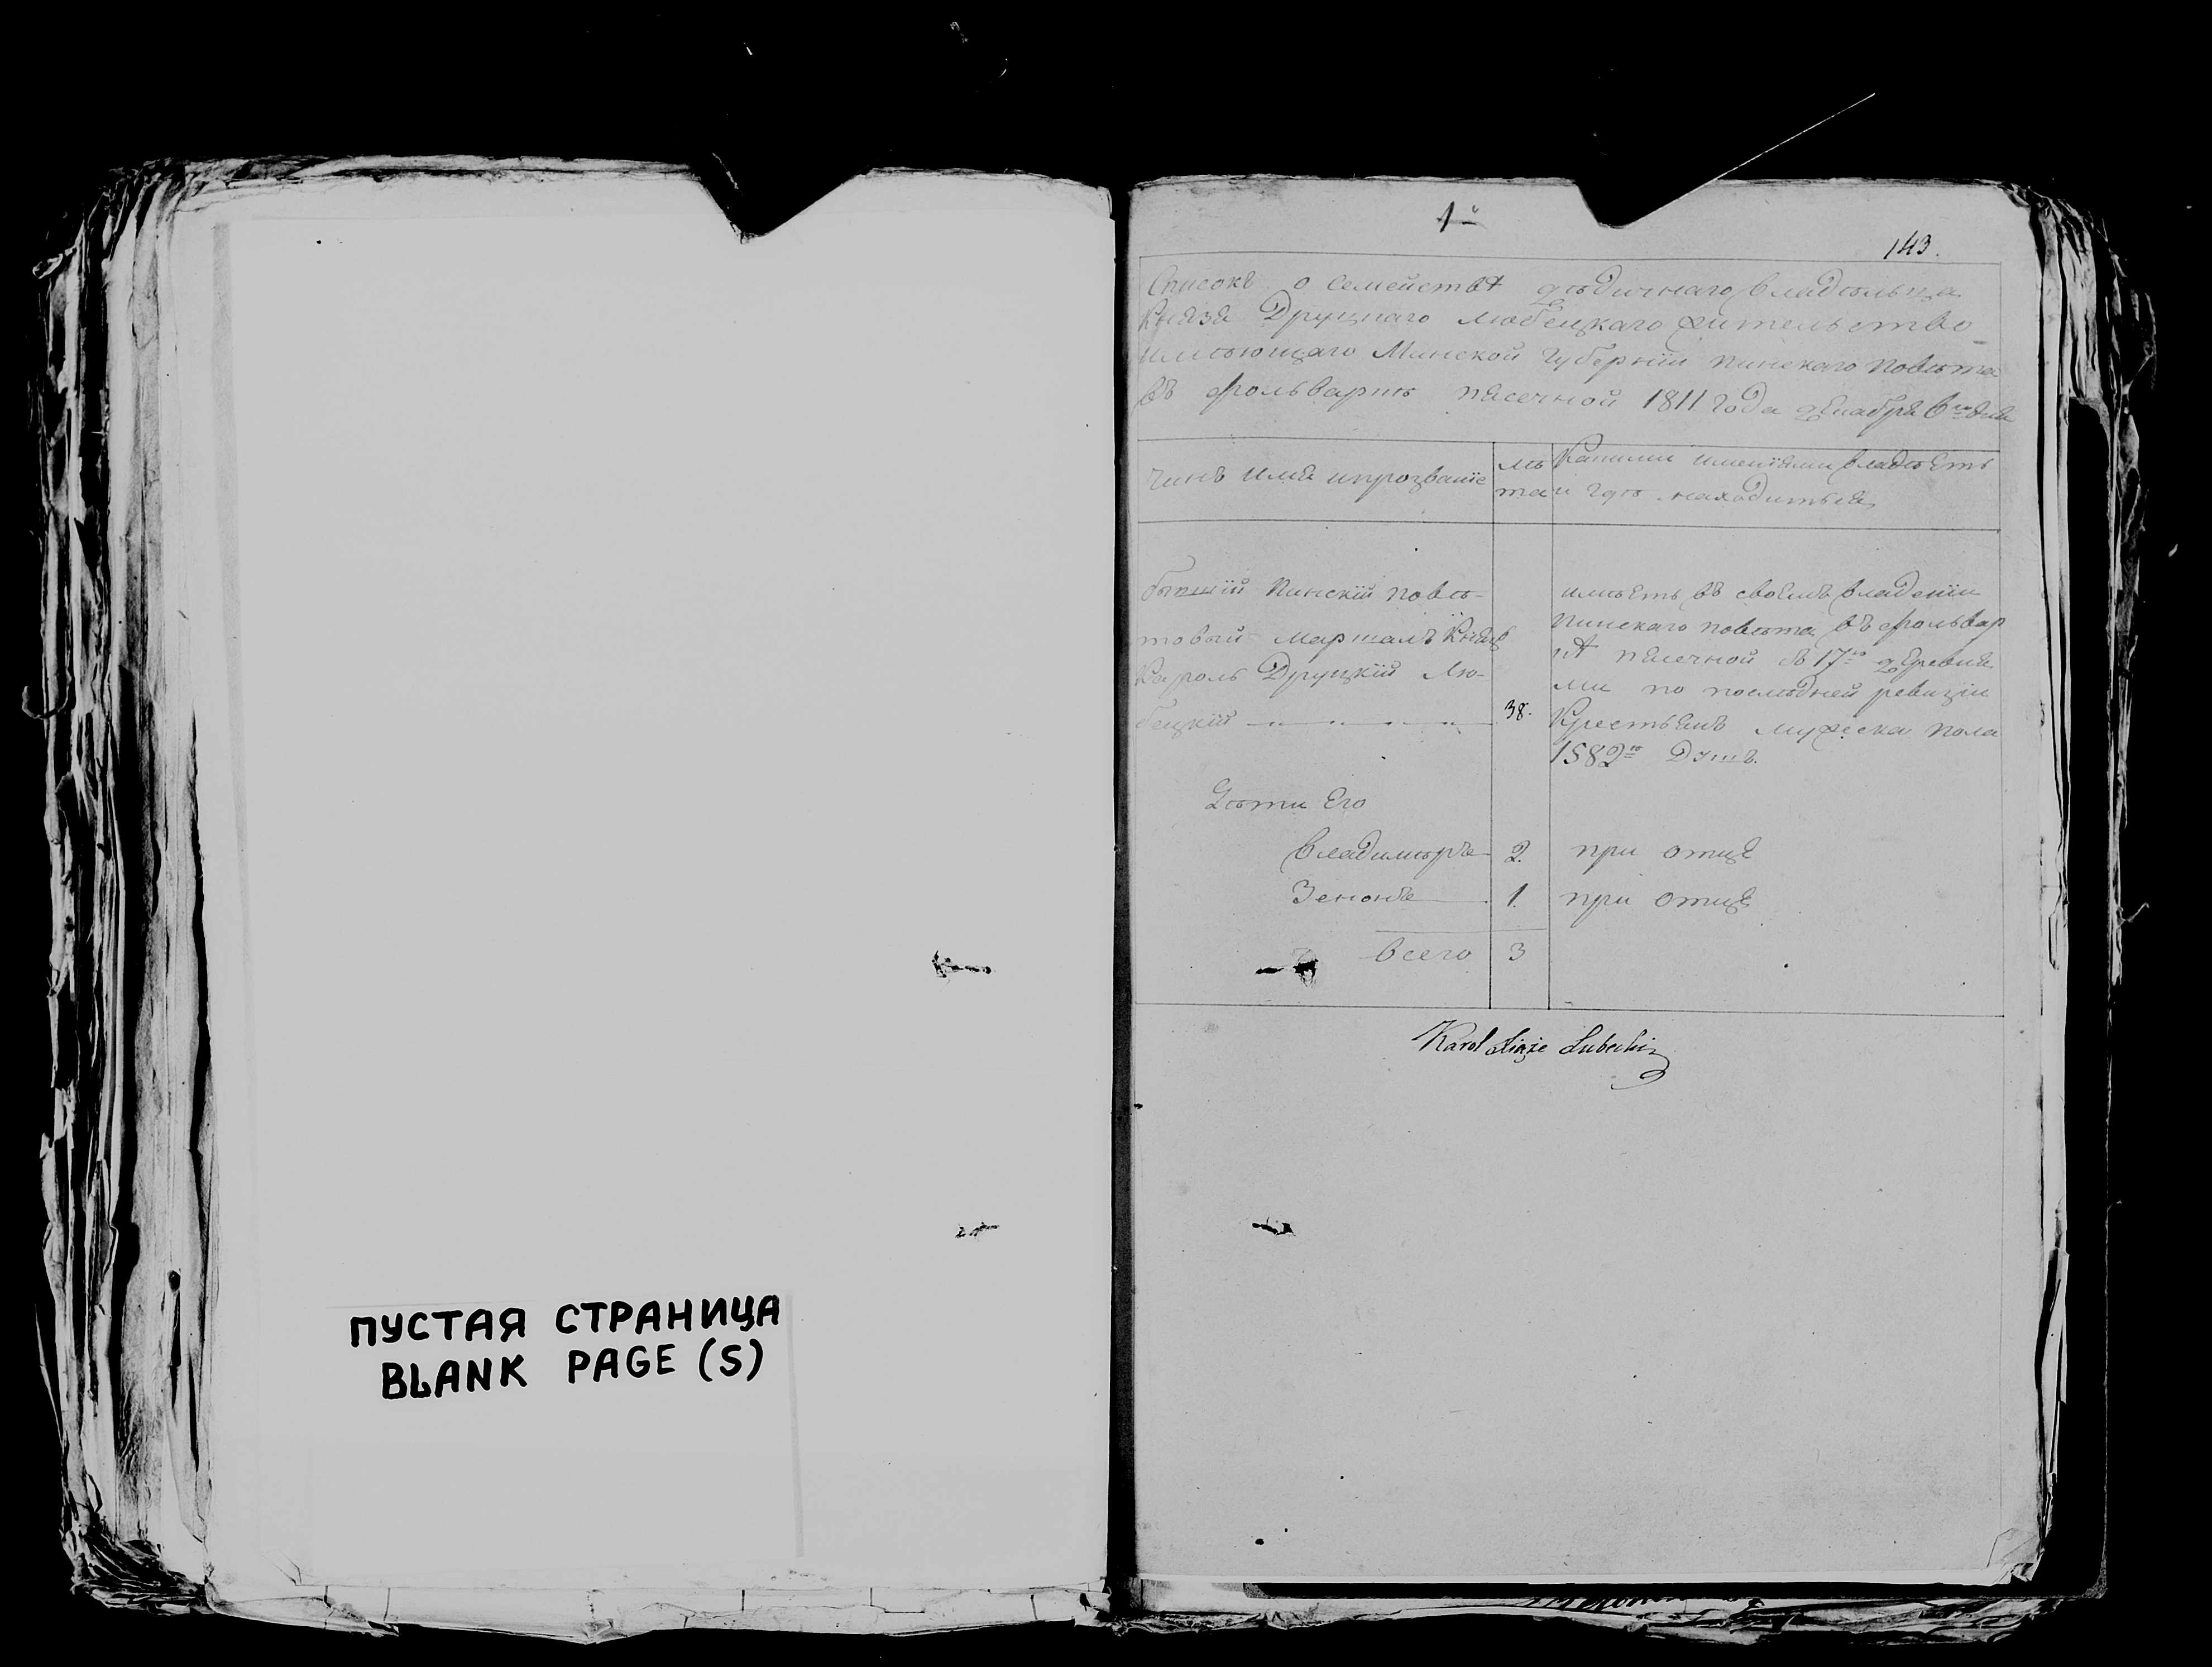 ПУСТАЯ СТРАНИЦА
BLANK PAGE (S)
1й
143.
Списокъ о семействѣ дѣдичнаго владѣльца
Князя Друцкаго Любецкаго жительство
имѣющаго Минской Губерніи Пинскаго Повѣта
въ фольваркѣ Пясечной 1811 года декабря 6го дня
Чинъ имя и прозваніе
лѣ
та
Какими имѣніями владѣетъ
и гдѣ находиться
бывшій Пинскій повѣ-
товый Маршалъ Князь
Кароль Друцкій Лю-
бецкій
38.
имѣетъ въ своемъ владеніи
Пинскаго повѣта въ фольвар
кѣ Пясечной съ 17ю деревня
ми по послѣдней ревизіи
Крестьянъ мужеска пола
1582ю Душъ.
Дѣти Его
Владимѣръ 2. при отцѣ
Зенонъ 1. при отцѣ
всего 3
Karol Xiąże Lubecki